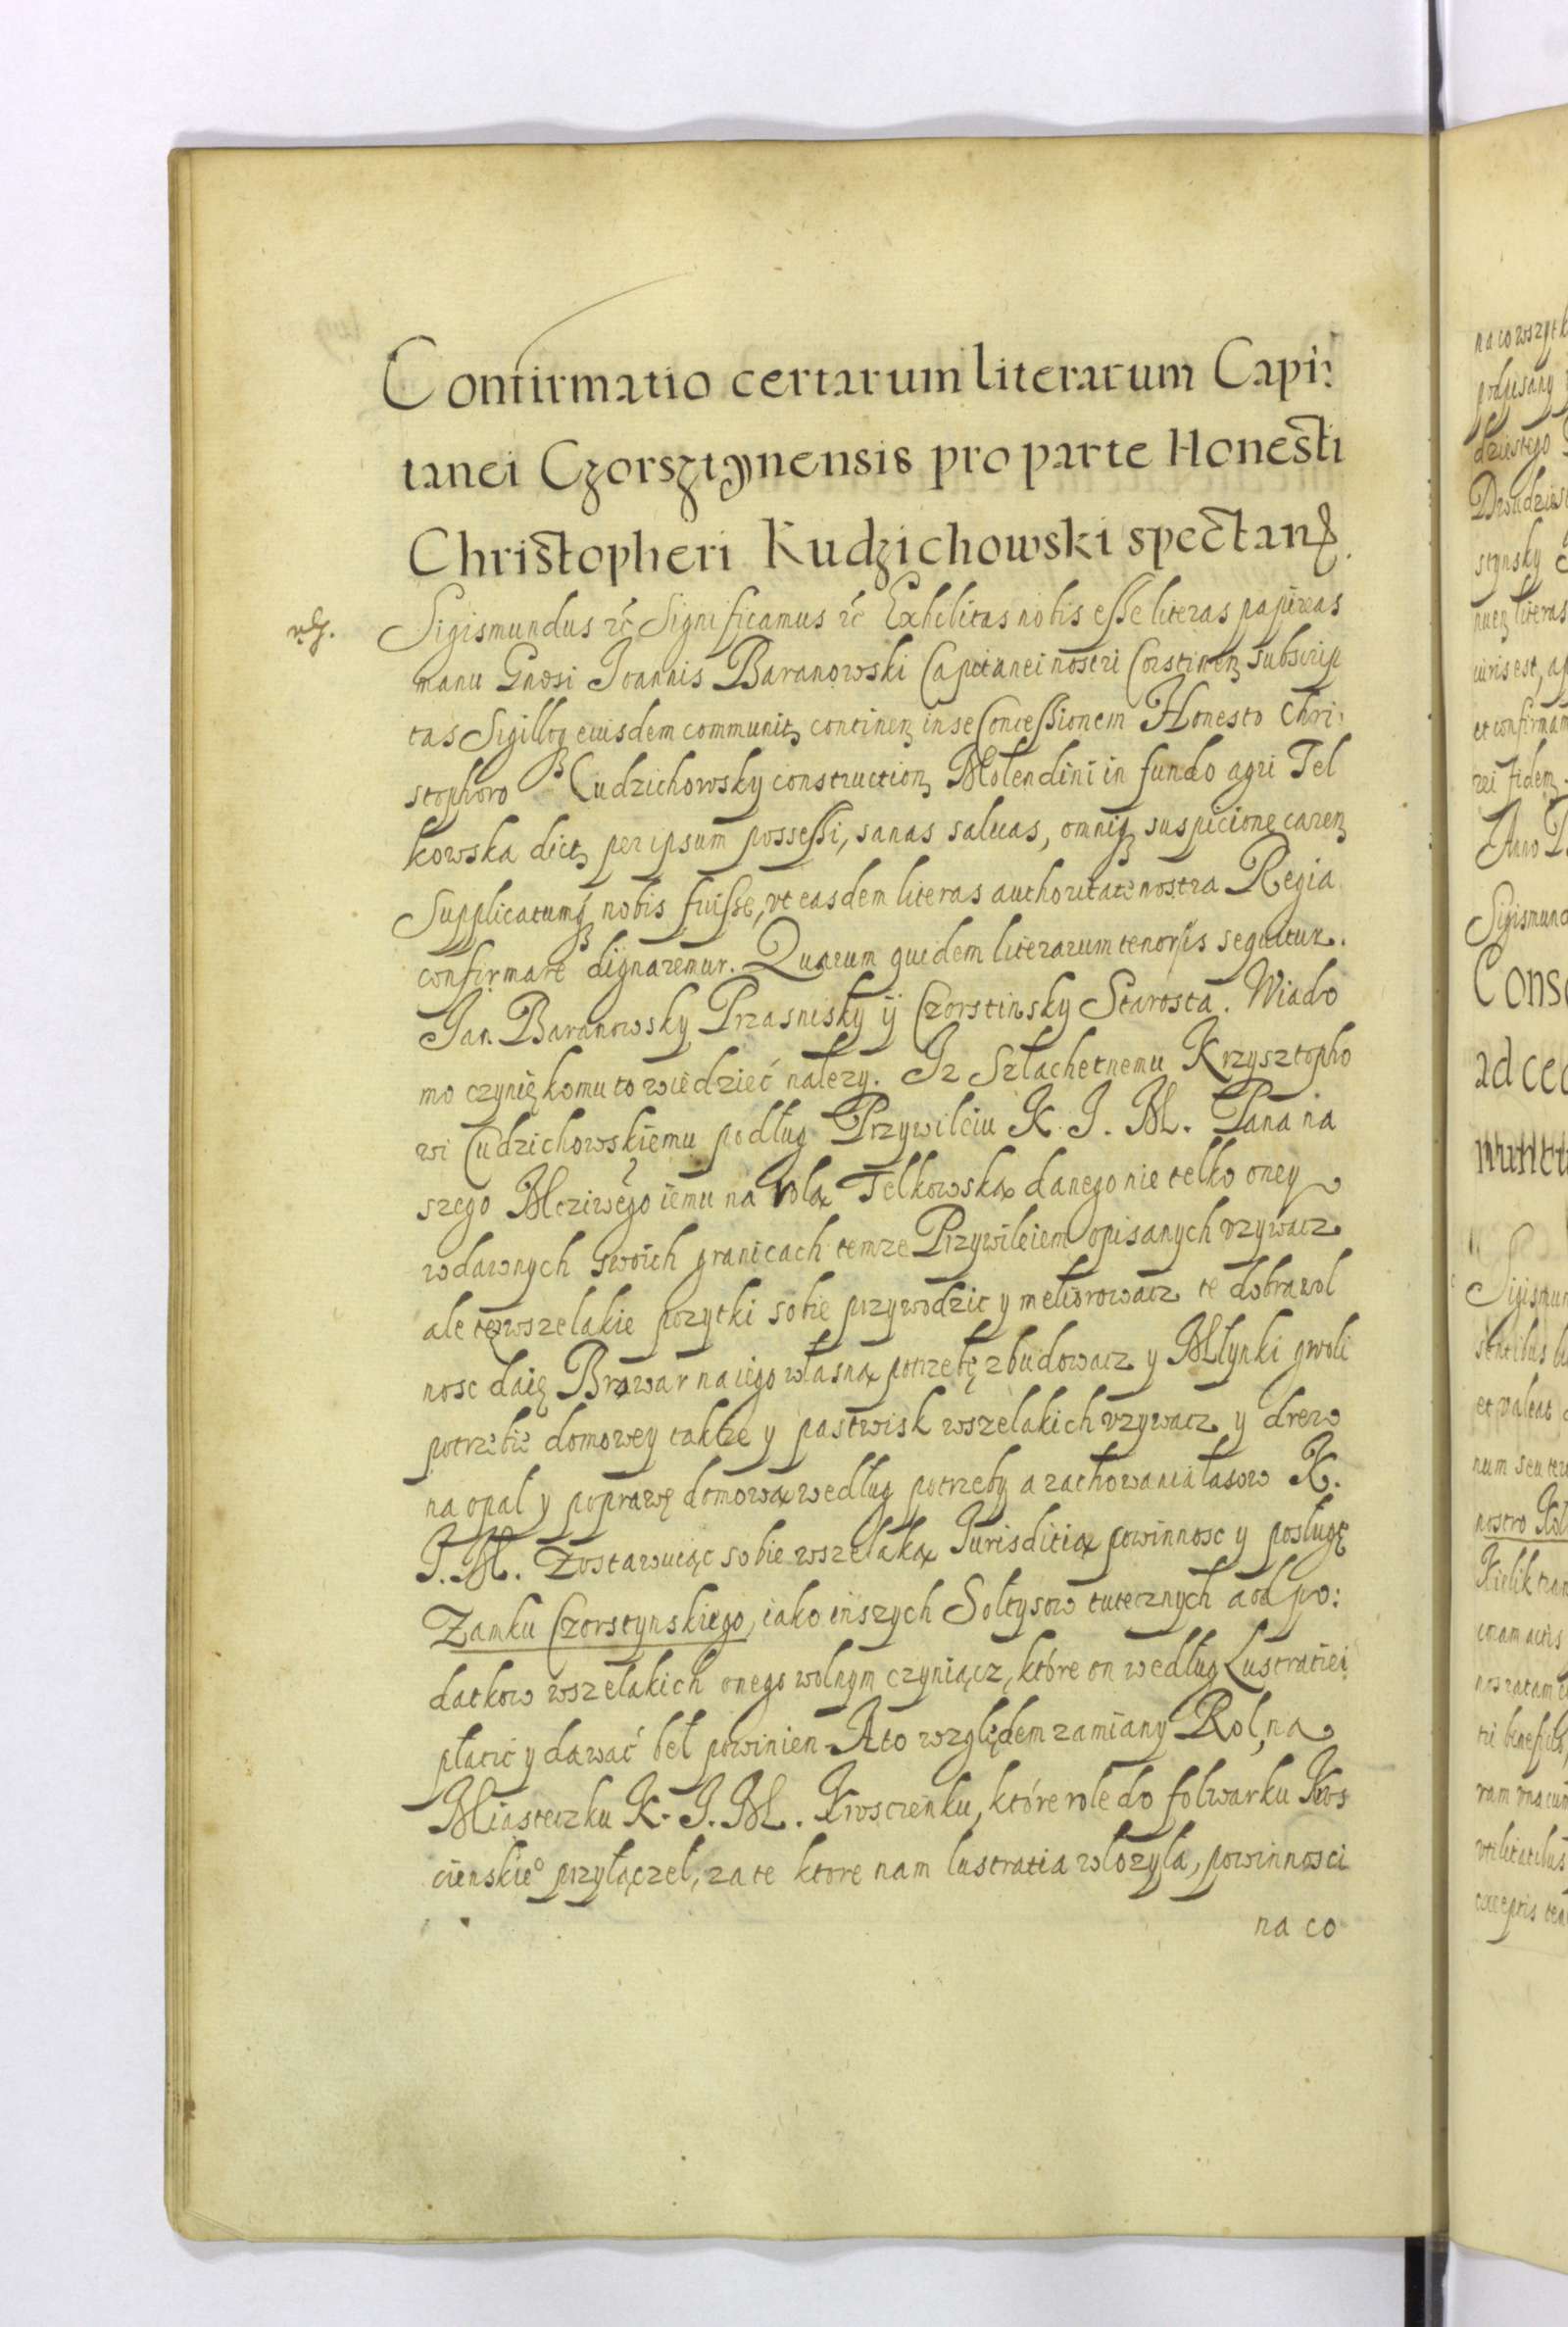 Confirmatio certarum literarum Capi:
tanei Czorsztynensis pro parte Honesti
Christopheri Kudzichowski spectan̄
Sigismundus etc̄ Significamus etc̄ Exhibitas nobis esse literas papireas
manu Gnosi Joannis Baranowski Capitanei nostri Corstinen̄ subscrip
tas Sigilloq̃ eiusdem communitz continen̄ in se Concessionem Honesto Chri:
stophoro Cudzichowsky construction̄ Molendini in fundo agri Tel
kowska dictz per ipsum possessi, sanas saluas, omniq̃ suspicione caren̄
Supplicatumq̃ nobis fuisse, vt easdem literas authoritate nostra Regia
confirmare dignaremur. Quarum quidem literarum tenor is sequitur.
Jan Baranowsky Przasnisky ÿ Czorstinsky Starosta. Wiado
mo czynię komu to wiedzieć nalezy. Iz Szlachetnemu Krzysztopho
wi Cudzichowskiemu podług Przywileiu K. J. M. Pana na
szego Mcziwego iemu na Rolą Telkowską danego nie telko oney
w dawnych swoich granicach temze Przywileiem opisanych vzywacz
ale tez wszelakie pozytki sobie przywodzic y meliorowacz te dobrawol
nosc daię Browar na iego własną potrzebę zbudowacz y Młynki gwoli
potrzebie domowey takze y pastwisk wszelakich vzywacz y drew
na opal y poprawę domową według potrzeby a zachowania lasow K.
J. M. Zostawuiąc sobie wszelaką Jurisditią powinnosc y posługę
Zamku Czorstynskiego, iako inszych Sołtysow tutecznych a od po:
datkow wszelakich onego wolnym czyniącz, które on według Lustratiei
płacić y dawać beł powinien. A to względem zamiany Rol, na
Miasteczku K. J. M. Krosczenku, które role do folwarku Kros
cienskie° przyłączel, za te ktore nam lustratia włozyła, powinnosci
na co